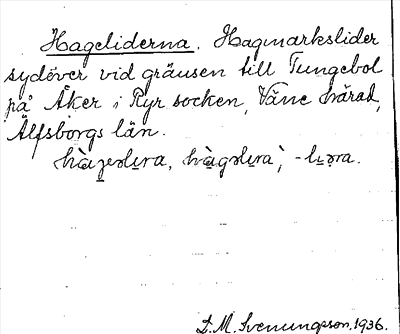 Hageliderna. Hagmarkslider
sydöver vid gränsen till Tungebol
på Åker i Ryr socken, Väne härad,
Älfsborgs län.
D.M. Svenungsson, 1936.